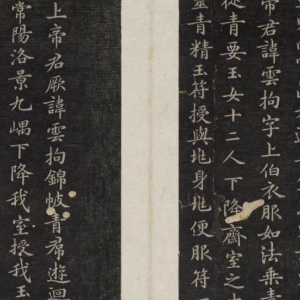 帝君諱雲拘字上伯衣服如法乘青
從青要玉女十二人下降齋室之
靈青精玉符授與兆身兆便服符
上帝君厥諱雲拘錦帔青帬遊迴
常陽洛景九嵎下降我室授我玉